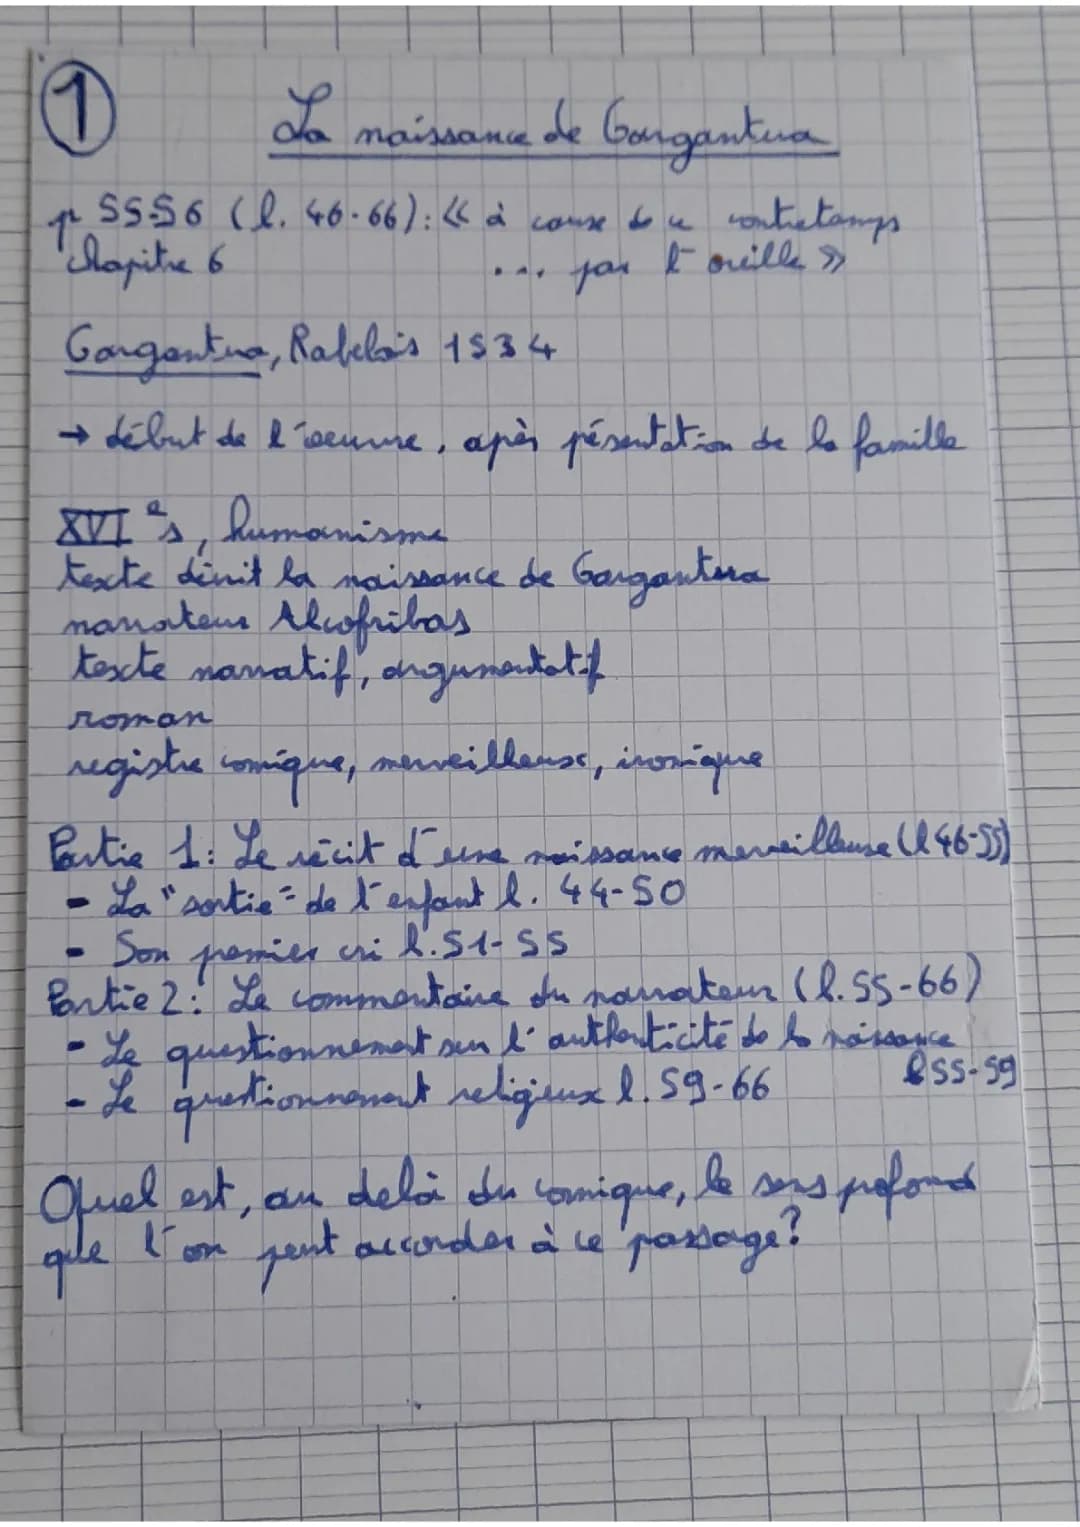 1
La naissance de Gargantua
p 55-56 (l. 46-66): « à cause de ce contretemps
chapitre 6 ... par l'oreille »
Gargantua, Rabelais 1534
→ début de l'oeuvre, après présentation de la famille
XVIe s, humanisme
texte décrit la naissance de Gargantua
narrateur Alcofribas
texte narratif, argumentatif
roman
registre comique, merveilleux, ironique
Partie 1: Le récit d'une naissance merveilleuse (l 46-55)
- La "sortie" de l'enfant l. 44-50
- Son premier cri l. 51-55
Partie 2: Le commentaire du narrateur (l. 55-66)
- Le questionnement sur l'authenticité de la naissance
l 55-59
- Le questionnement religieux l. 59-66
Quel est, au delà du comique, le sens profond
que l'on peut accorder à ce passage?